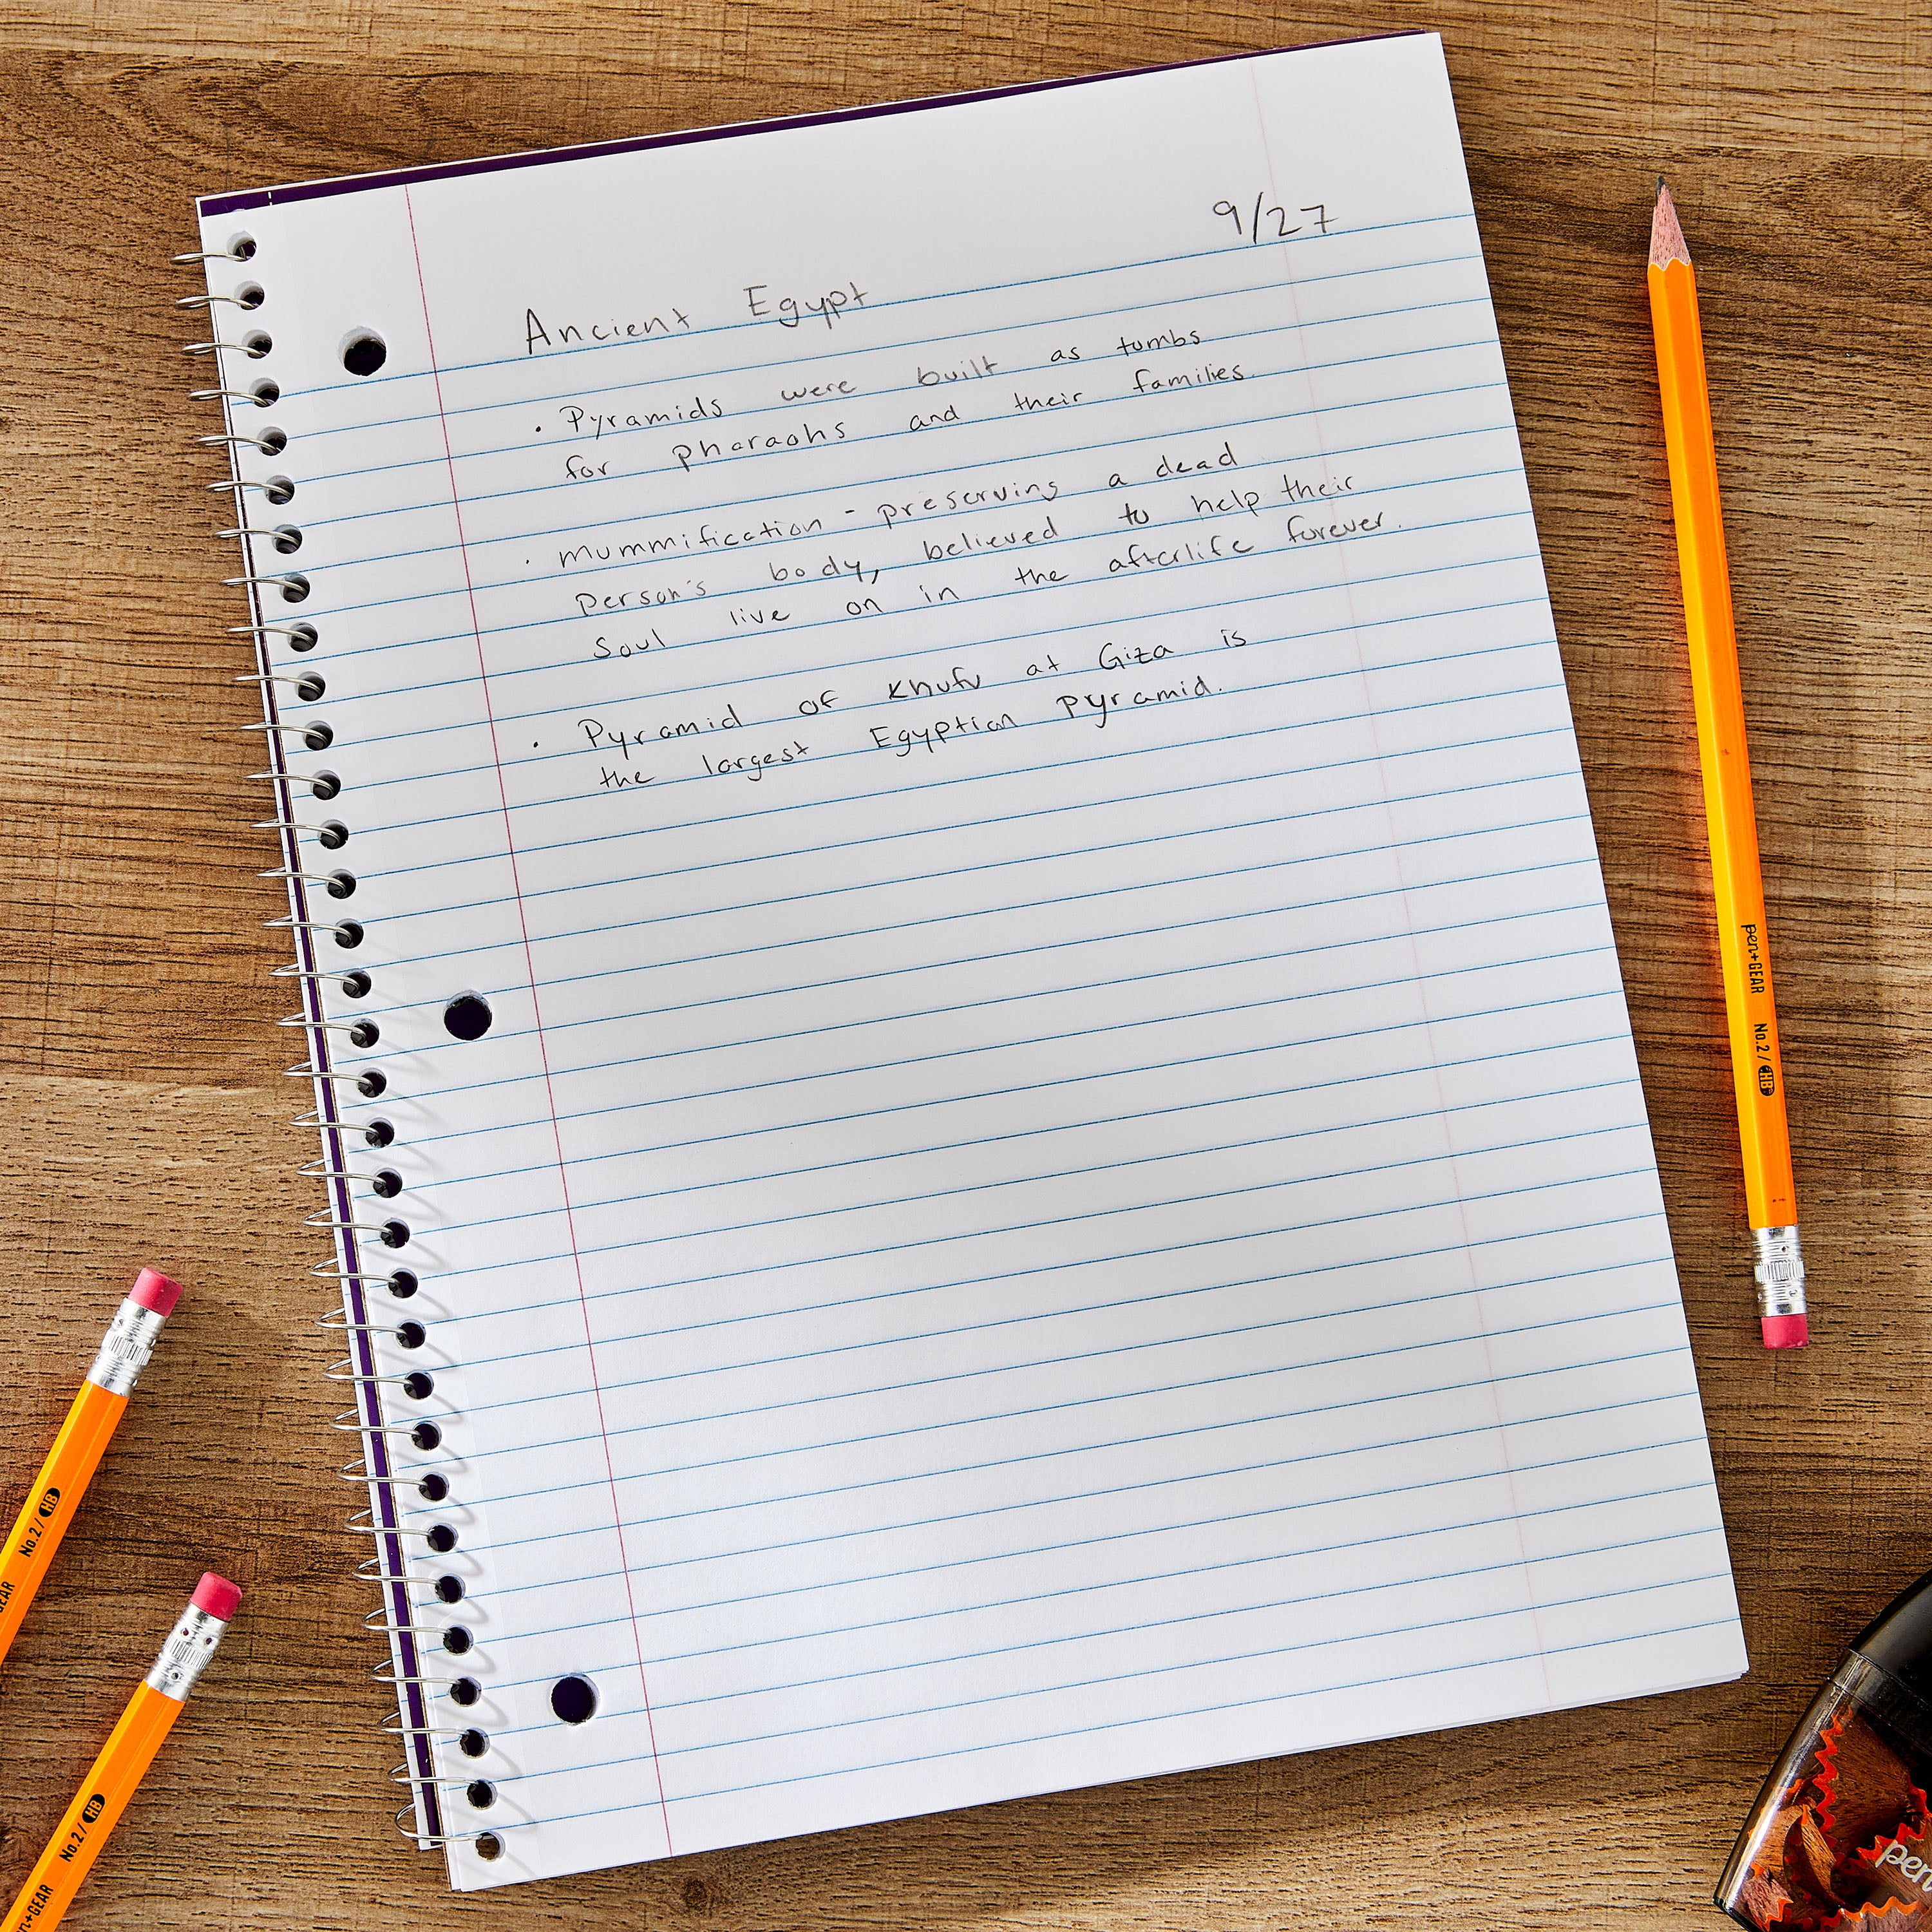 9/27
Ancient Egypt
• Pyramids were built as tombs
for pharaohs and their families.
• mummification - preserving a dead
person's body, believed to help their
soul live on in the afterlife forever.
• Pyramid of Khufu at Giza is
the largest Egyptian pyramid.
pen+GEAR No.2/HB
No.2/HB
GEAR
No.2/HB
n+GEAR
pen